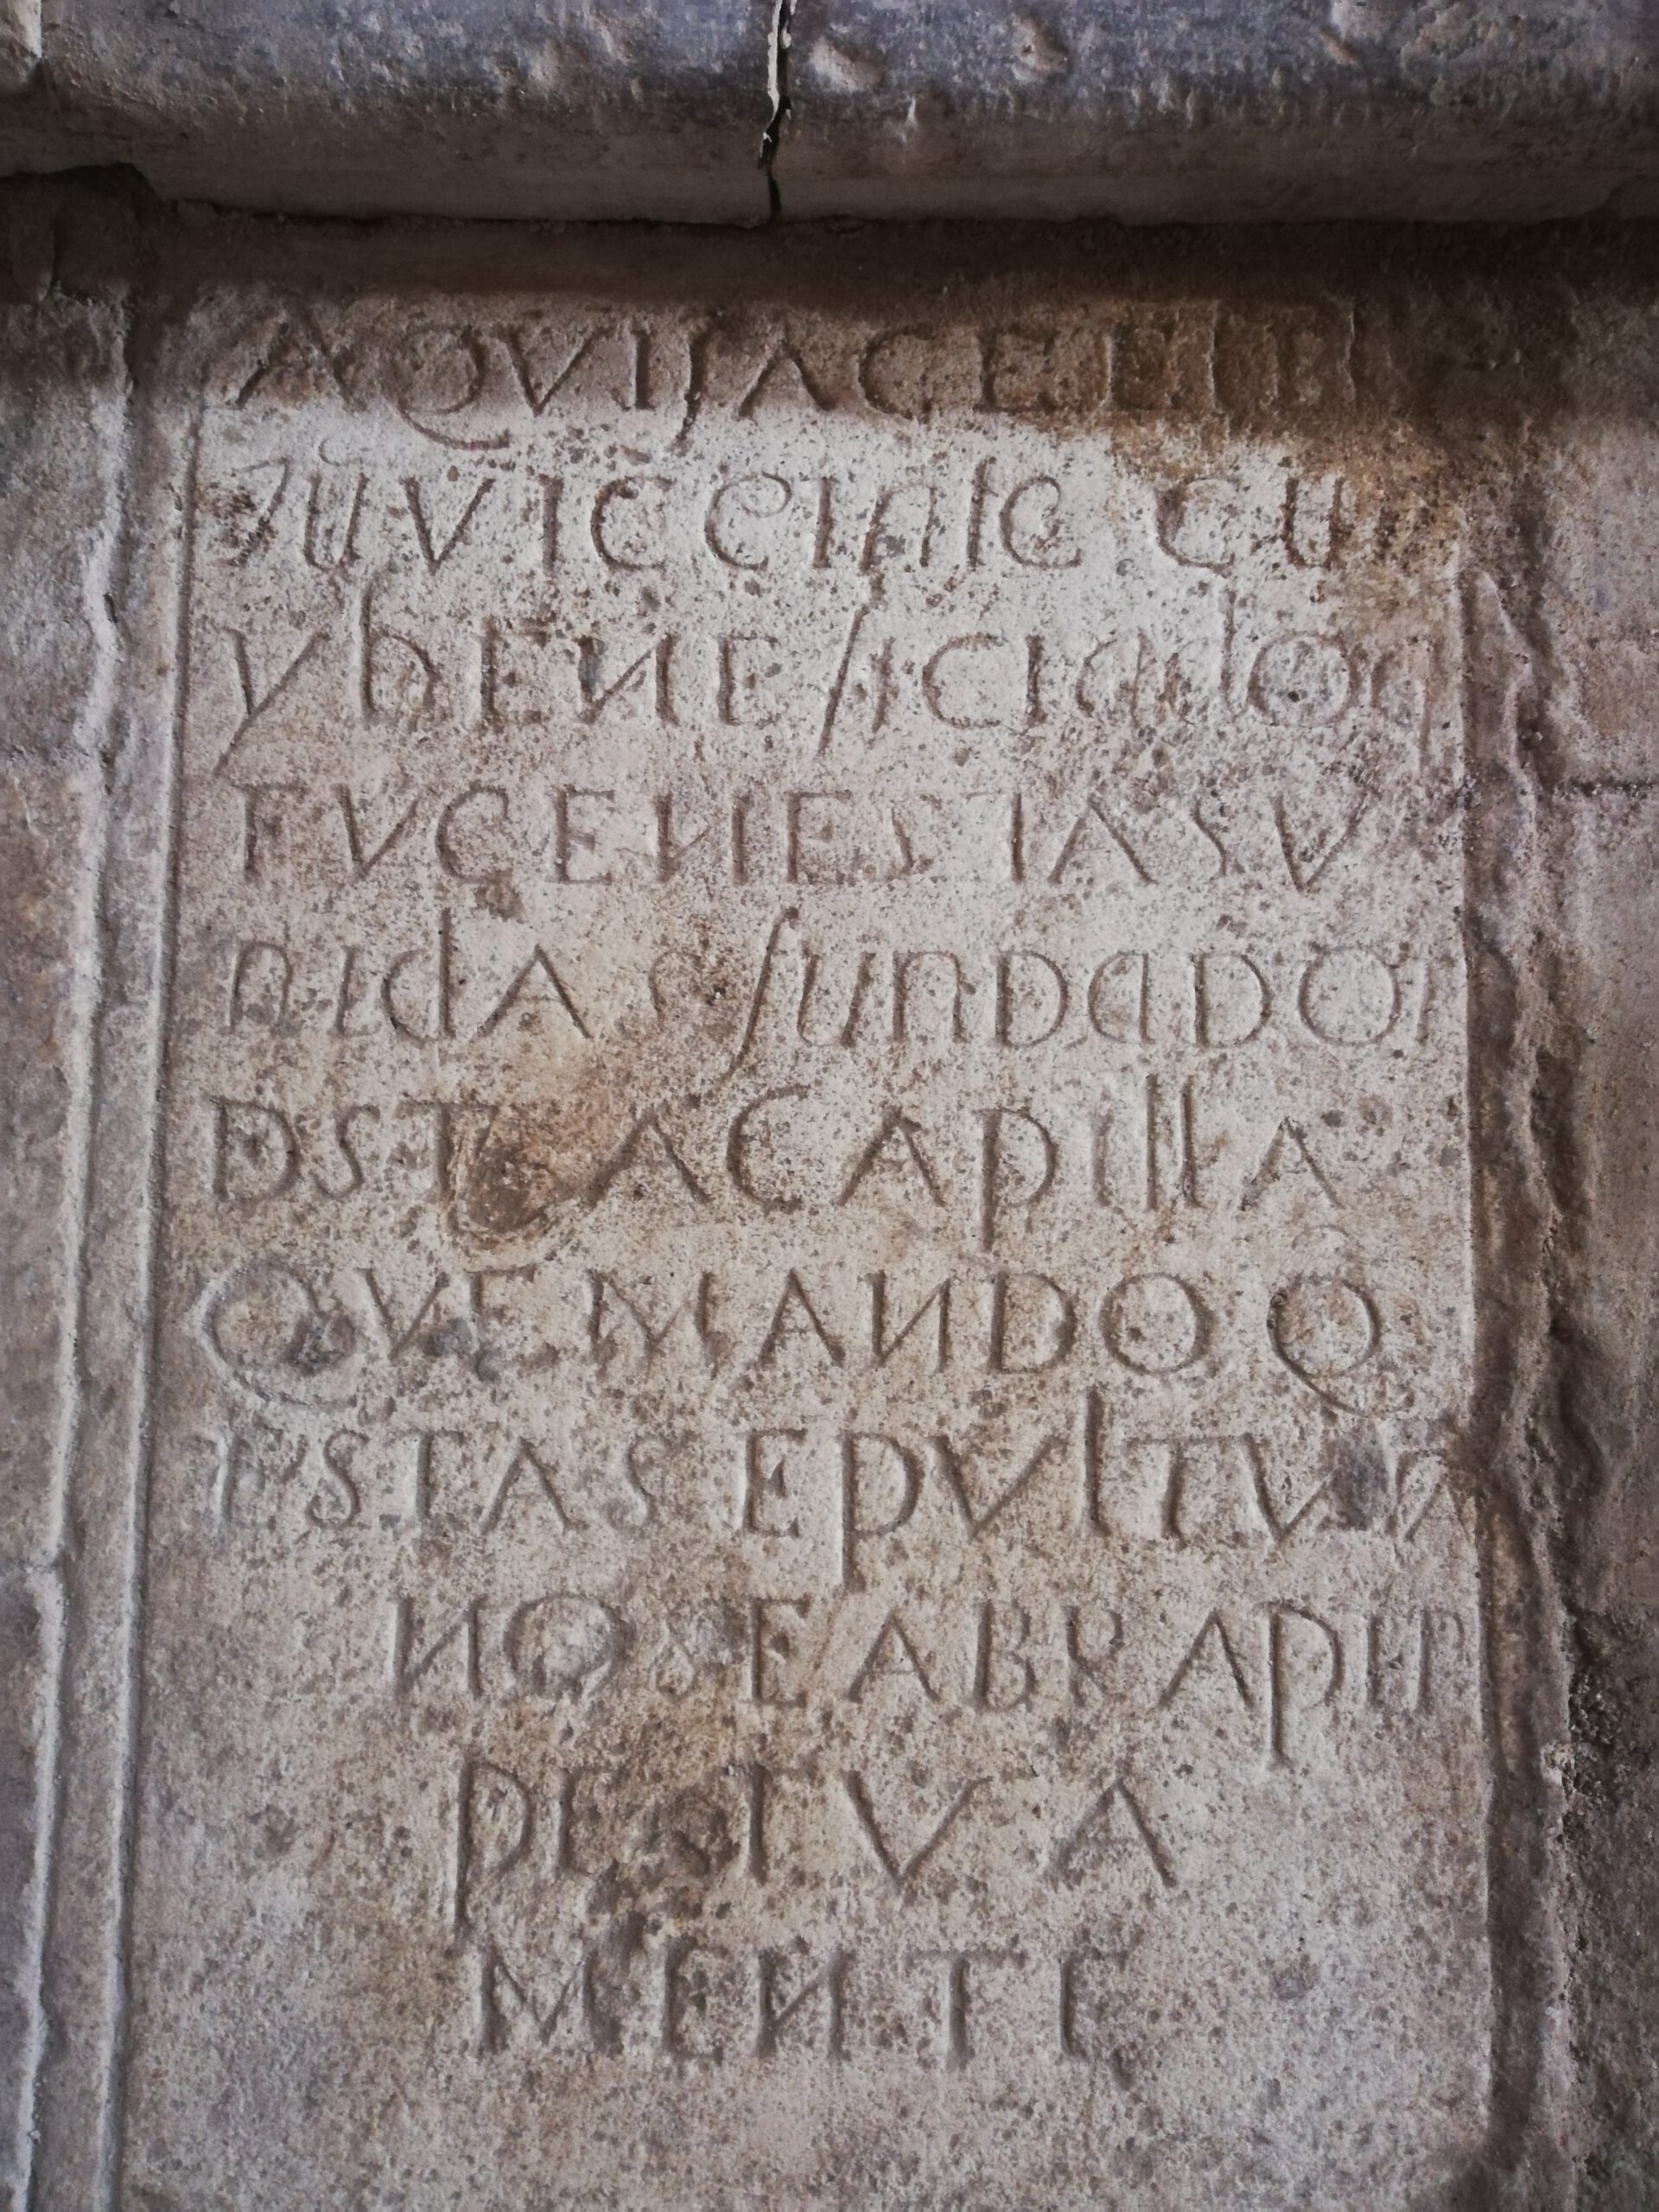 AQVI JACE EL
JUVIC CINTE CU
Y bENEfICIAdO q
FUC EN ESTAS U
nIdAS fUnDADOR
DSTA CApIllA
QVE MANDO Q
ESTA SEpVlTVRA
NO SE ABRA pER
pETVA
MENTE